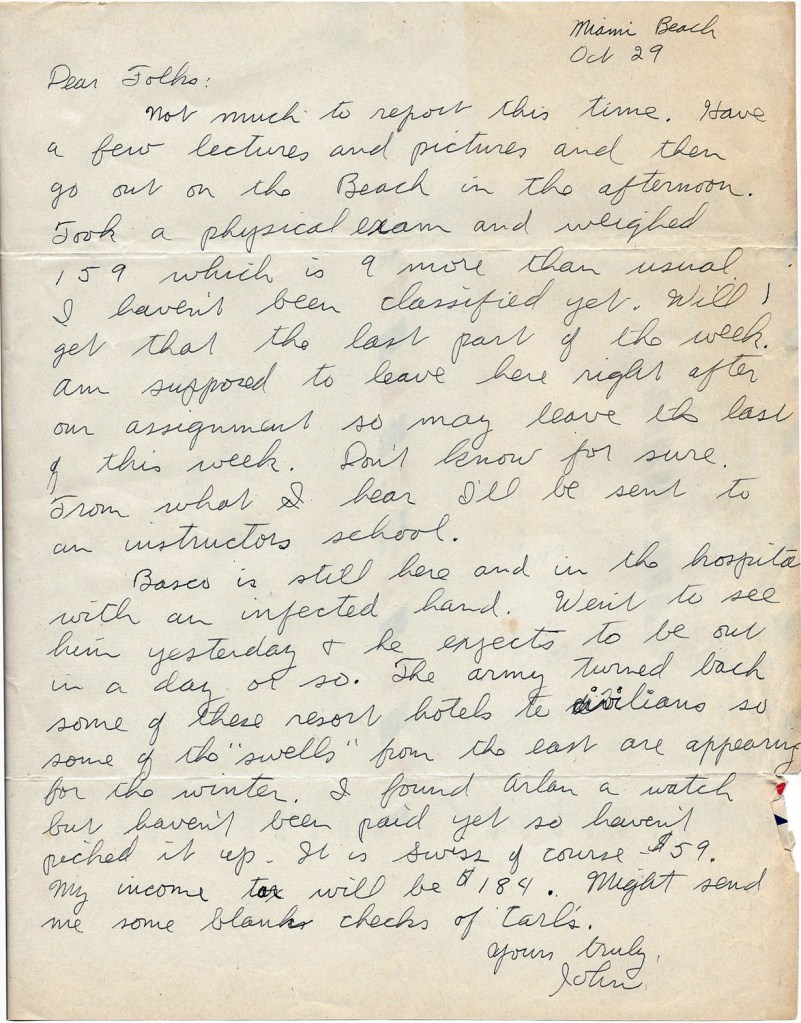 Miami Beach
Oct 29
Dear Folks:
Not much to report this time. Have
a few lectures and pictures and then
go out on the Beach in the afternoon.
Took a physical exam and weighed
159 which is 9 more than usual.
I haven't been classified yet. Will
get that the last part of the week.
Am supposed to leave here right after
our assignment so may leave the last
of this week. Don't know for sure.
From what I hear I'll be sent to
an instructors school.
Basco is still here and in the hospital
with an infected hand. Went to see
him yesterday & he expects to be out
in a day or so. The army turned back
some of these resort hotels to civilians so
some of the "swells" from the east are appearing
for the winter. I found Arlan a watch
but haven't been paid yet so haven't
picked it up. It is Swiss of course - $59.
My income tax will be $184. Might send
me some blank checks of Carl's.
Yours truly,
John